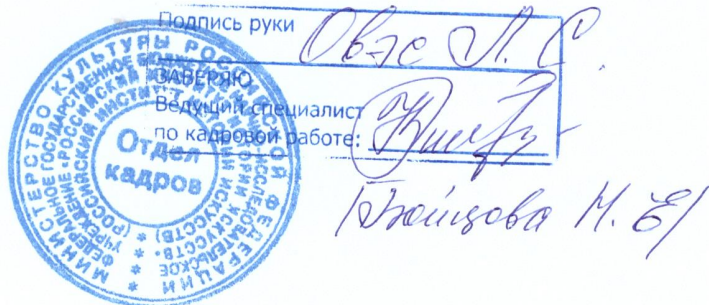 Подпись руки Овэс Л. С.
ЗАВЕРЯЮ
Ведущий специалист
по кадровой работе:
/Бойцова М. Е/
МИНИСТЕРСТВО КУЛЬТУРЫ РОССИЙСКОЙ ФЕДЕРАЦИИ
ФЕДЕРАЛЬНОЕ ГОСУДАРСТВЕННОЕ БЮДЖЕТНОЕ
УЧРЕЖДЕНИЕ «РОССИЙСКИЙ ИНСТИТУТ ИСТОРИИ ИСКУССТВ»
Отдел
кадров